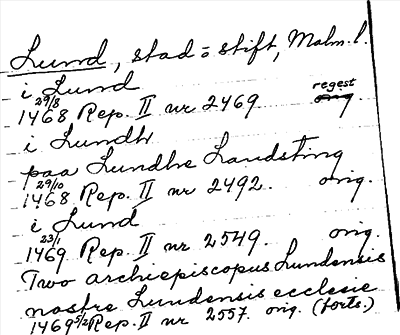 Lund, stad = stift, Malm. l.
i Lund
29/8 1468 Rep. II nr 2469 regest
i Lundh
paa Lundhe Landsting
29/10 1468 Rep. II nr 2492. orig.
i Lund
23/1 1469 Rep. II nr 2549. orig.
Two archiepiscopus Lundensis
nostre Lundensis ecclesie
1469 5/2 Rep. II nr 2557. orig. (forts.)